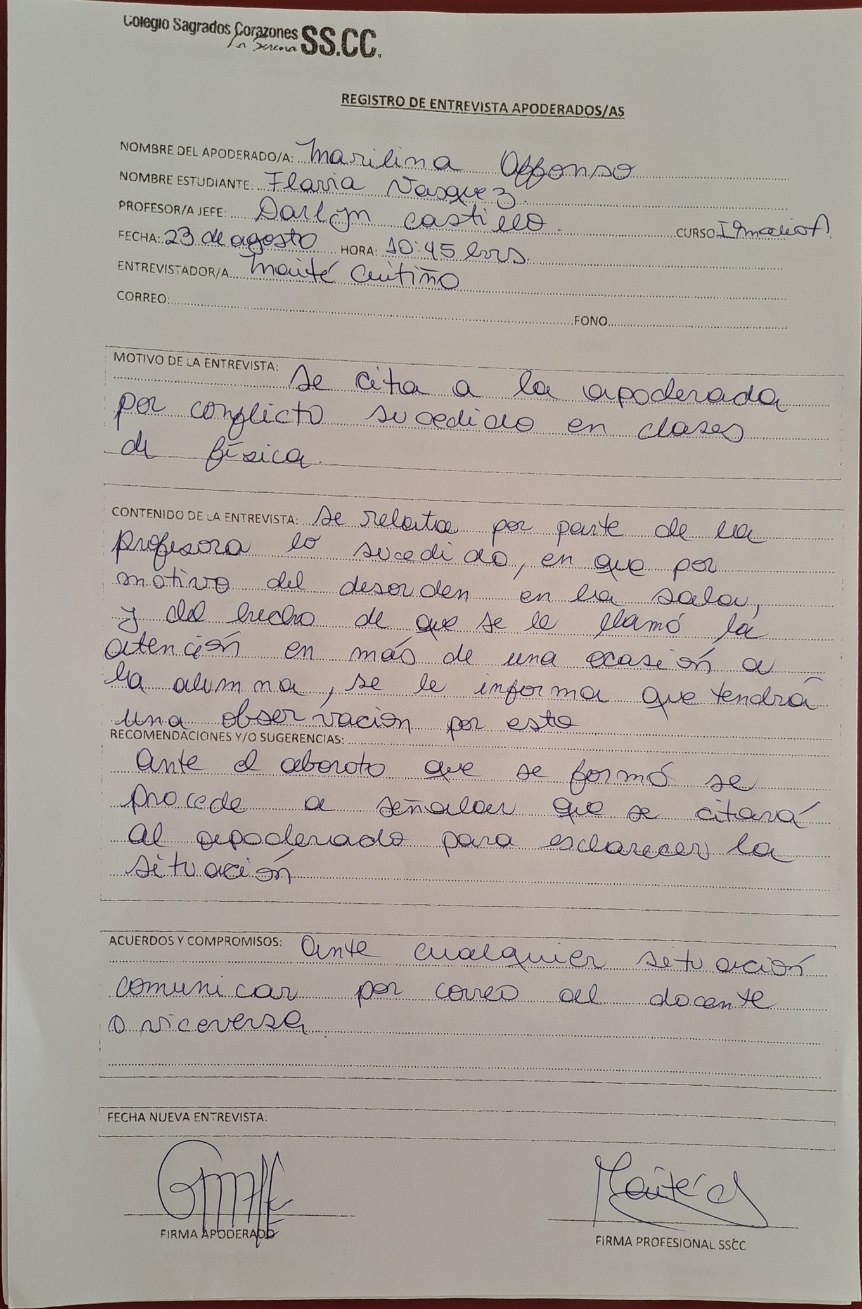 Colegio Sagrados Corazones
La Serena SS.CC.
REGISTRO DE ENTREVISTA APODERADOS/AS
NOMBRE DEL APODERADO/A: Marilina Offonso
NOMBRE ESTUDIANTE: Flavia Vasquez
PROFESOR/A JEFE: Darlyn Castillo. CURSO I° medio A
FECHA: 23 de agosto HORA: 10:45 hrs.
ENTREVISTADOR/A Maité Cortiño
CORREO: FONO
MOTIVO DE LA ENTREVISTA: Se cita a la apoderada
por conflicto sucedido en clases
de física.
CONTENIDO DE LA ENTREVISTA: Se relata por parte de la
profesora lo sucedido, en que por
motivo del desorden en la sala,
y del hecho de que se le llamó la
atención en más de una ocasión a
la alumna, se le informa que tendrá
una observación por esto
RECOMENDACIONES Y/O SUGERENCIAS:
Ante el alboroto que se formó se
procede a señalar que se citará
al apoderado para esclarecer la
situación
ACUERDOS Y COMPROMISOS: Ante cualquier situación
comunicar por correo al docente
o viceversa
FECHA NUEVA ENTREVISTA:
FIRMA APODERADO
FIRMA PROFESIONAL SSCC